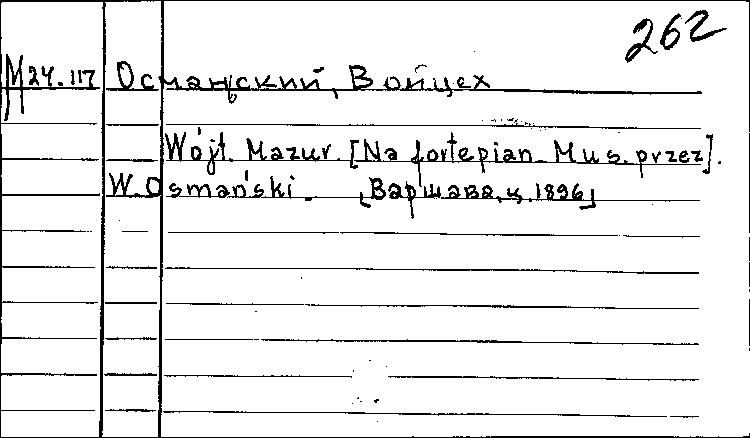 262
М24.117 Османский, Войцех
Wójt. Mazur. [Na fortepian. Mus. przez].
W. Osmański. [Варшава, ц. 1896]